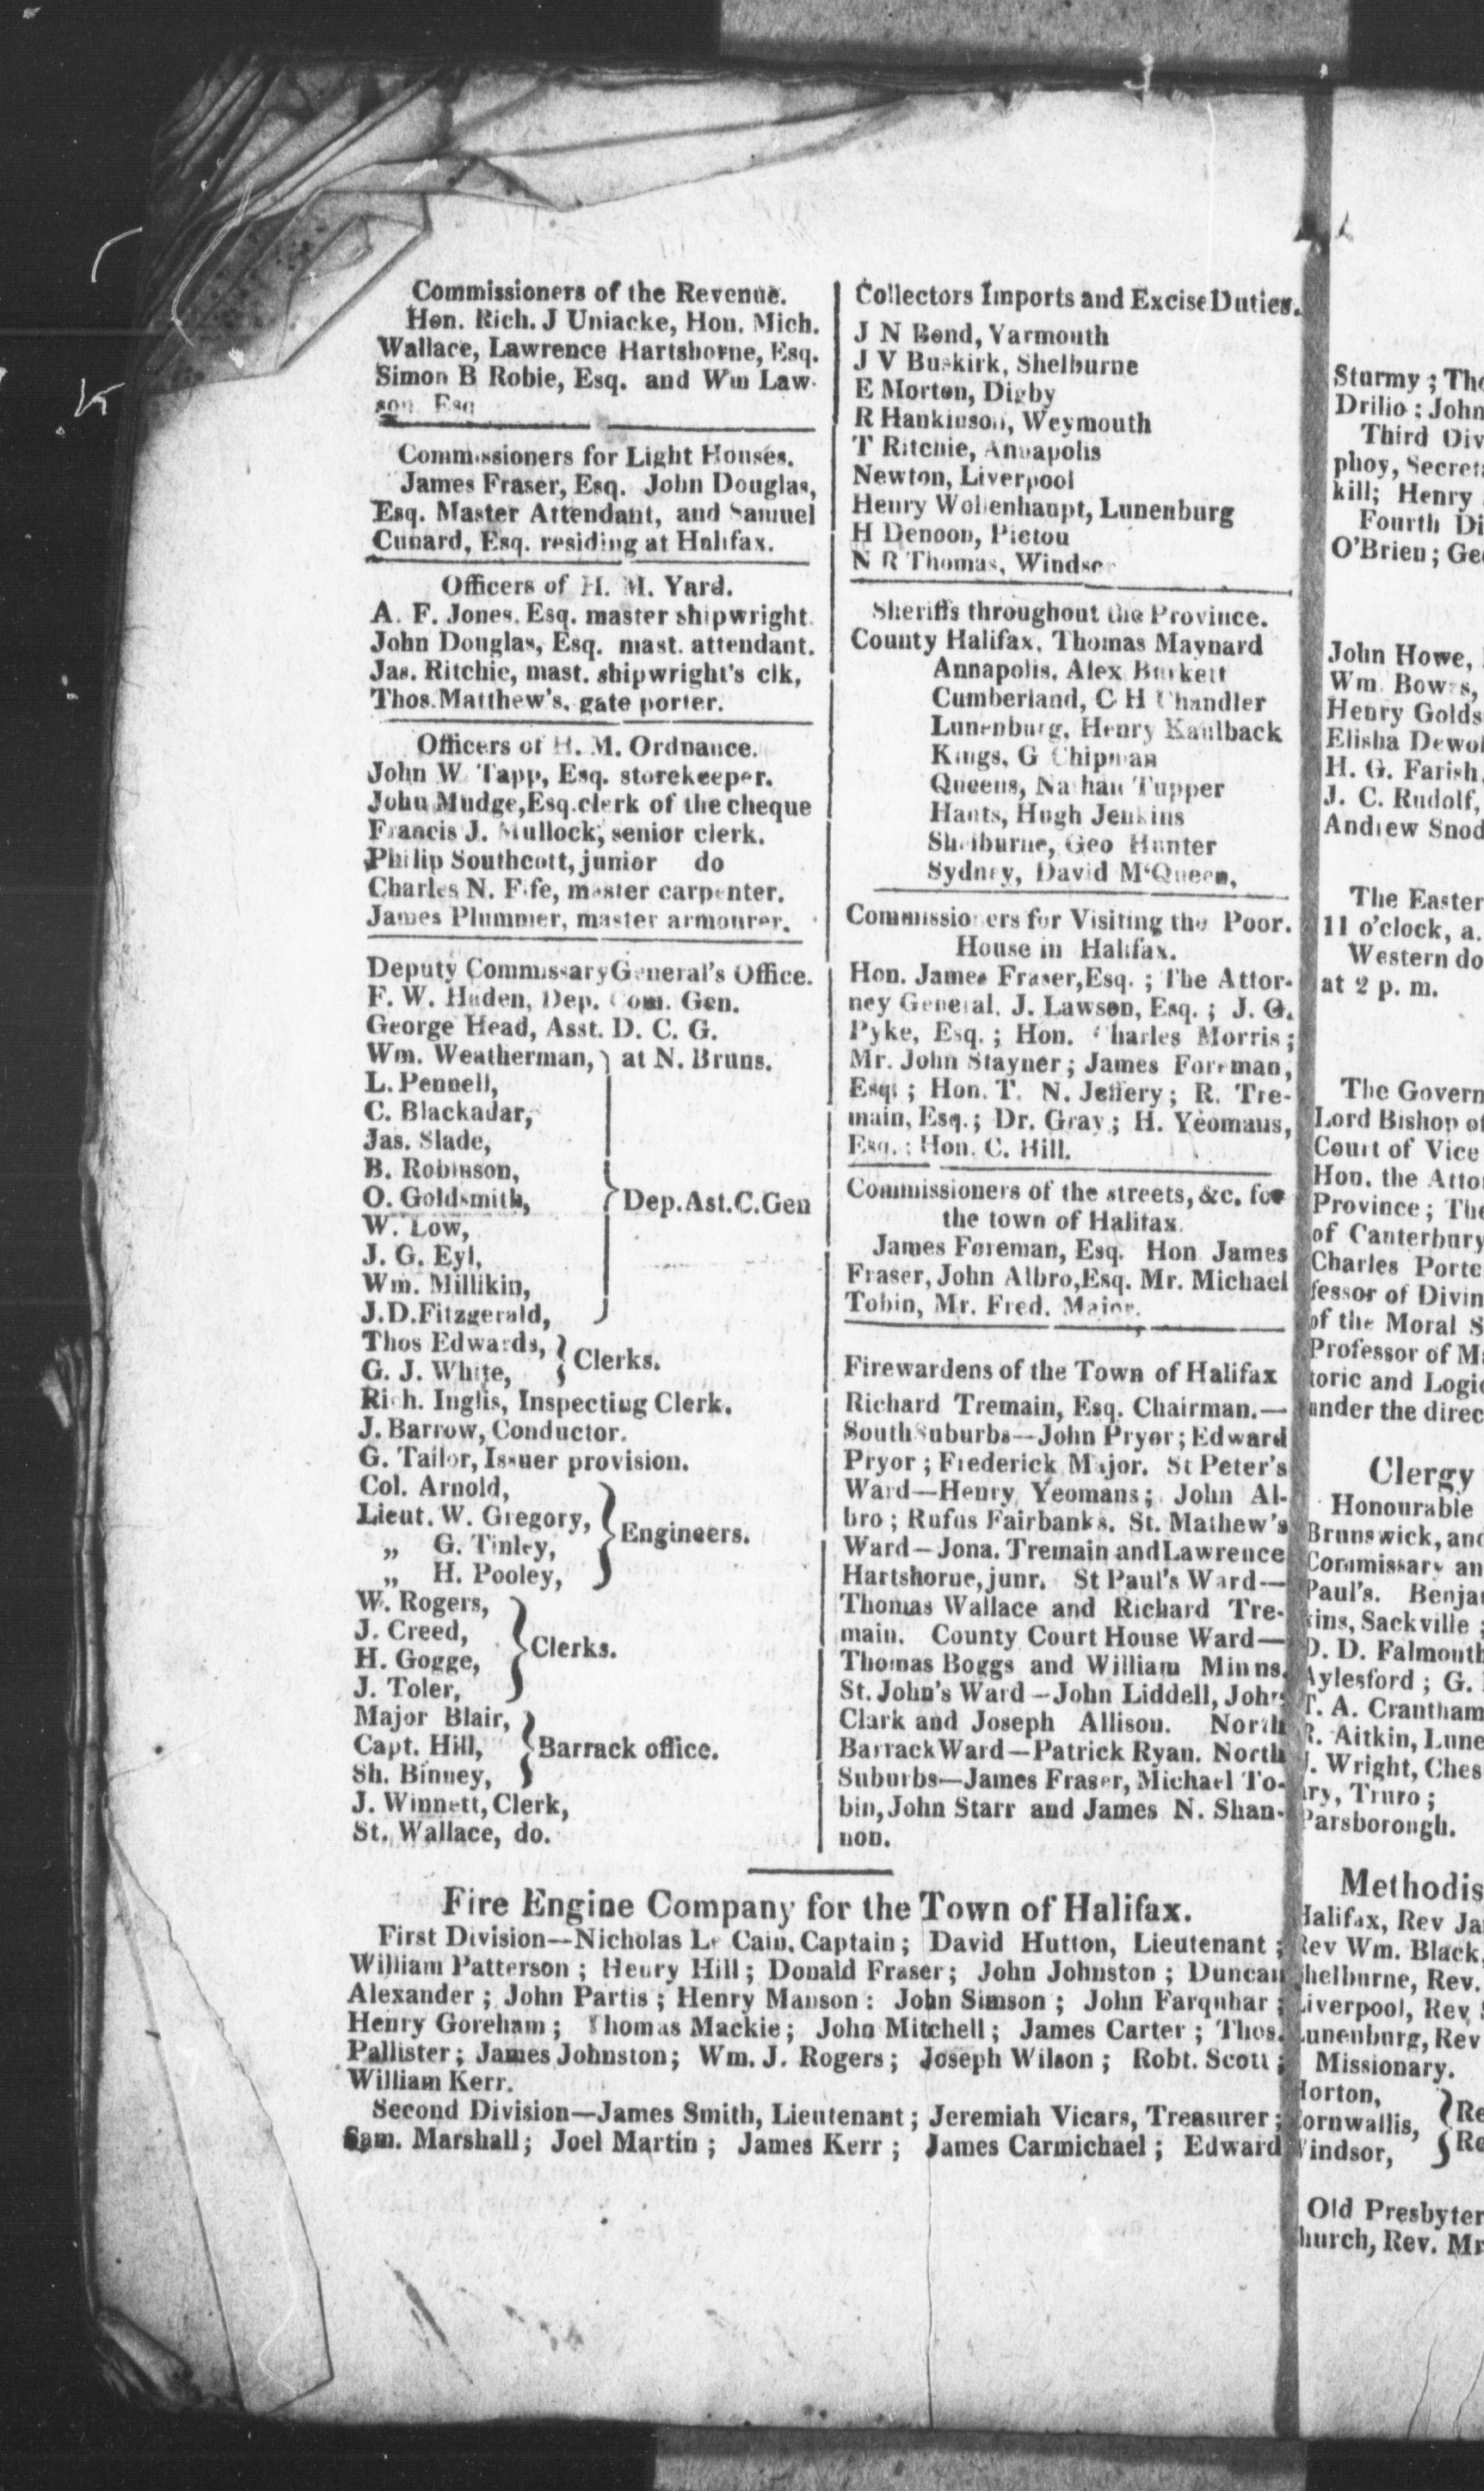 Commissioners of the Revenue.
Hon. Rich. J Uniacke, Hon. Mich.
Wallace, Lawrence Hartshorne, Esq.
Simon B Robie, Esq. and Wm Law-
son Esq
Commissioners for Light Houses.
James Fraser, Esq. John Douglas,
Esq. Master Attendant, and Samuel
Cunard, Esq. residing at Halifax.
Officers of H. M. Yard.
A. F. Jones, Esq. master shipwright.
John Douglas, Esq. mast. attendant.
Jas. Ritchie, mast. shipwright's clk,
Thos. Matthew's, gate porter.
Officers of H. M. Ordnance.
John W Tapp, Esq. storekeeper.
John Mudge, Esq. clerk of the cheque
Francis J. Mullock, senior clerk.
Philip Southcott, junior do
Charles N. Fife, master carpenter.
James Plummer, master armourer.
Deputy Commissary General's Office.
F. W. Haden, Dep. Com. Gen.
George Head, Asst. D. C. G.
Wm. Weatherman, } at N. Bruns.
L. Pennell,
C. Blackadar,
Jas. Slade,
B. Robinson,
O. Goldsmith, } Dep. Ast. C. Gen
W. Low,
J. G. Eyl,
Wm. Millikin,
J. D. Fitzgerald,
Thos Edwards, } Clerks.
G. J. White,
Rich. Inglis, Inspecting Clerk.
J. Barrow, Conductor.
G. Tailor, Issuer provision.
Col. Arnold,
Lieut. W. Gregory, } Engineers.
„ G. Tinley,
„ H. Pooley,
W. Rogers,
J. Creed, } Clerks.
H. Gogge,
J. Toler,
Major Blair,
Capt. Hill, } Barrack office.
Sh. Binney,
J. Winnett, Clerk,
St. Wallace, do.
Collectors Imports and Excise Duties.
J N Bond, Yarmouth
J V Buskirk, Shelburne
E Morton, Digby
R Hankinson, Weymouth
T Ritchie, Annapolis
Newton, Liverpool
Henry Wollenhaupt, Lunenburg
H Denoon, Pictou
N R Thomas, Windsor
Sheriffs throughout the Province.
County Halifax, Thomas Maynard
Annapolis, Alex Burkett
Cumberland, C H Chandler
Lunenburg, Henry Kaulback
Kings, G Chipman
Queens, Nathan Tupper
Hants, Hugh Jenkins
Shelburne, Geo Hunter
Sydney, David M'Queen,
Commissioners for Visiting the Poor.
House in Halifax.
Hon. James Fraser, Esq. ; The Attor-
ney General, J. Lawson, Esq. ; J. G.
Pyke, Esq. ; Hon. Charles Morris;
Mr. John Stayner; James Foreman,
Esq. ; Hon. T. N. Jeffery; R. Tre-
main, Esq.; Dr. Gray; H. Yeomans,
Esq. : Hon. C. Hill.
Commissioners of the streets, &c. for
the town of Halifax.
James Foreman, Esq. Hon James
Fraser, John Albro, Esq. Mr. Michael
Tobin, Mr. Fred. Major.
Firewardens of the Town of Halifax
Richard Tremain, Esq. Chairman.—
South Suburbs—John Pryor; Edward
Pryor; Frederick Major. St Peter's
Ward—Henry Yeomans; John Al-
bro; Rufus Fairbanks. St. Mathew's
Ward—Jona. Tremain and Lawrence
Hartshorne, junr. St Paul's Ward—
Thomas Wallace and Richard Tre-
main. County Court House Ward—
Thomas Boggs and William Minns.
St. John's Ward—John Liddell, John
Clark and Joseph Allison. North
Barrack Ward—Patrick Ryan. North
Suburbs—James Fraser, Michael To-
bin, John Starr and James N. Shan-
non.
Fire Engine Company for the Town of Halifax.
First Division—Nicholas Le Cain, Captain; David Hutton, Lieutenant;
William Patterson; Henry Hill; Donald Fraser; John Johnston; Duncan
Alexander; John Partis; Henry Manson: John Simson; John Farquhar;
Henry Goreham; Thomas Mackie; John Mitchell; James Carter; Thos.
Pallister; James Johnston; Wm. J. Rogers; Joseph Wilson; Robt. Scott;
William Kerr.
Second Division—James Smith, Lieutenant; Jeremiah Vicars, Treasurer;
Sam. Marshall; Joel Martin; James Kerr; James Carmichael; Edward
Sturmy; Tho
Drilio; John
Third Div
phoy, Secret
kill; Henry
Fourth Di
O'Brien; Ge
John Howe,
Wm. Bowes,
Henry Golds
Elisha Dewol
H. G. Farish,
J. C. Rudolf,
Andrew Snod
The Easter
11 o'clock, a.
Western do
at 2 p. m.
The Govern
Lord Bishop of
Court of Vice
Hon. the Atto
Province; The
of Canterbury
Charles Porte
fessor of Divin
of the Moral S
Professor of M
toric and Logic
under the direc
Clergy
Honourable
Brunswick, and
Commissary an
Paul's. Benja
kins, Sackville;
D. D. Falmouth
Aylesford; G.
T. A. Crantham
R. Aitkin, Lune
J. Wright, Ches
ry, Truro;
Parsborough.
Methodis
Halifax, Rev Ja
Rev Wm. Black,
Shelburne, Rev.
Liverpool, Rev
Lunenburg, Rev
Missionary.
Horton,
Cornwallis, } Re
Windsor, Re
Old Presbyter
church, Rev. Mr